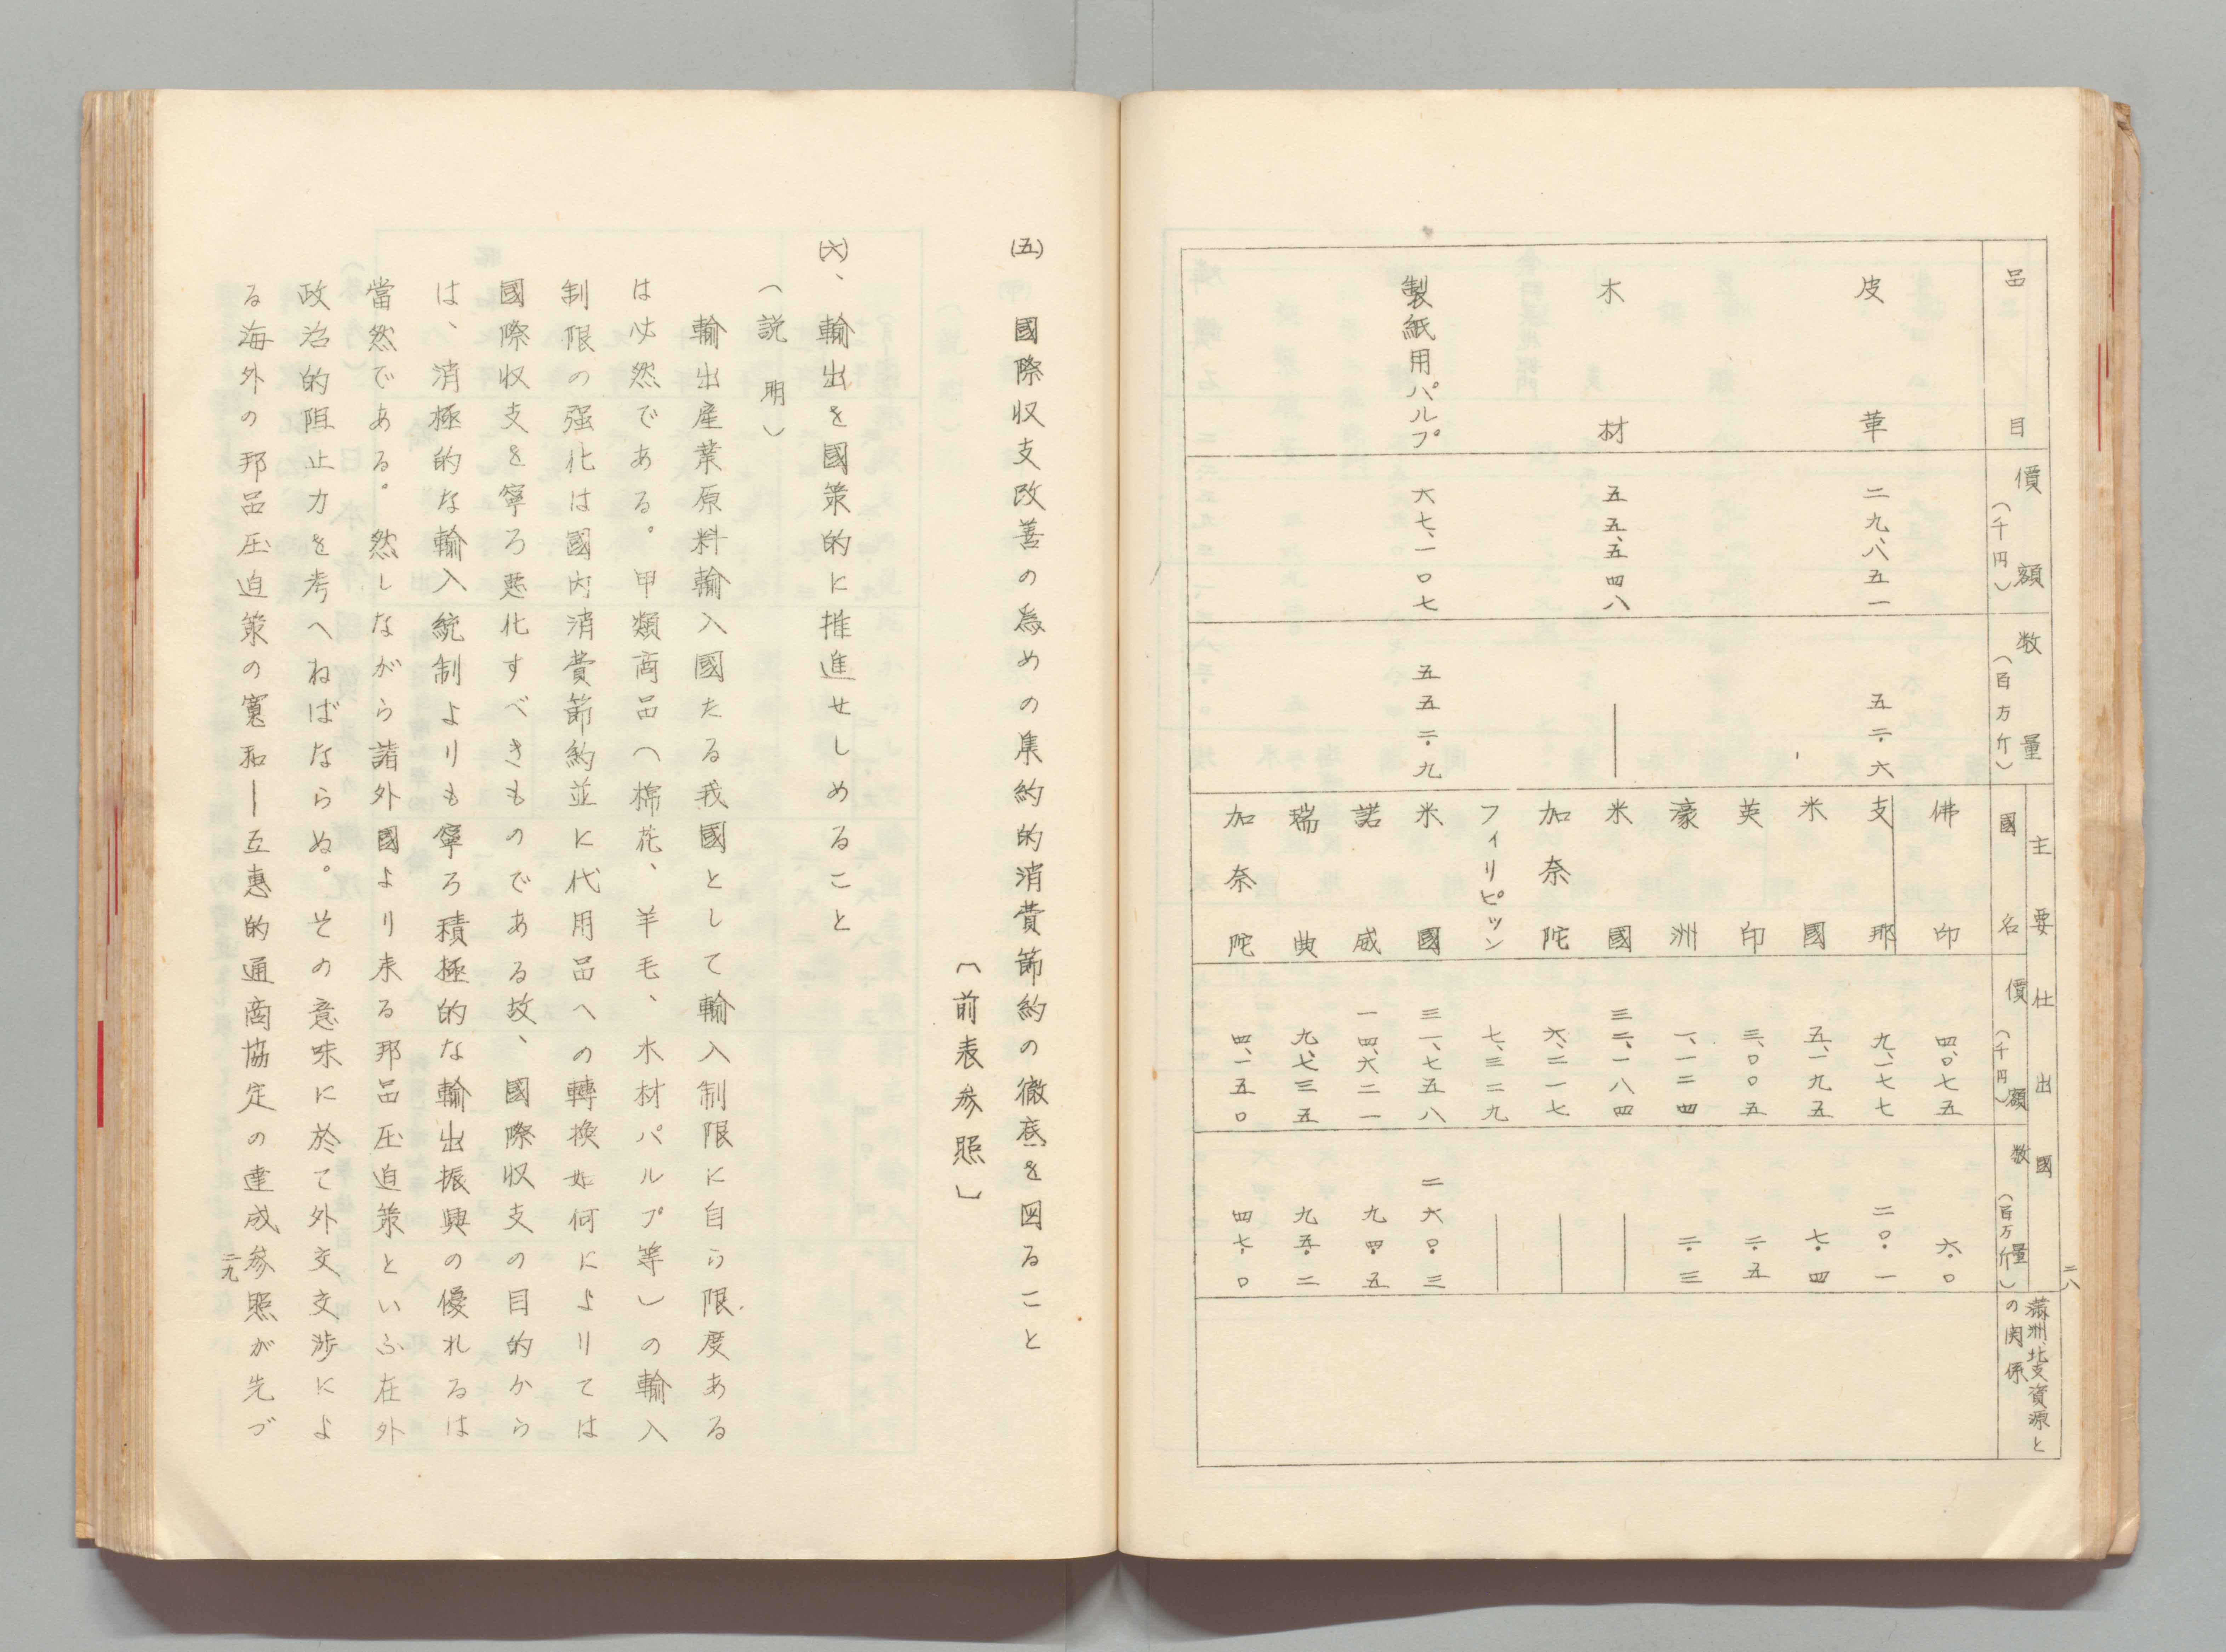 二八
品目
價額（千円）
数量（百万斤）
主要仕出國
國名
價額（千円）
数量（百万斤）
満洲、北支資源との関係
佛印 四、〇七五 六・〇
皮革 二九、八五一 五二・六
支那 九、一七七 二〇・一
米國 五、一九五 七・四
英印 三、〇〇五 二・五
濠洲 一、一二四 二・三
木材 五五、五四八 ―
米國 三二、一八四 ―
加奈陀 六、二一七 ―
フィリピッン 七、三二九 ―
製紙用パルプ 六七、一〇七 五五二・九
米國 三一、七五八 二六〇・三
諾威 一四、六二一 九四・五
瑞典 九、七三五 九五・二
加奈陀 四、一五〇 四七・〇
(五) 國際収支改善の為めの集約的消費節約の徹底を図ること
（前表参照）
(六)、輸出を國策的に推進せしめること
（説明）
輸出産業原料輸入國たる我國として輸入制限に自ら限度ある
は必然である。甲類商品（棉花、羊毛、木材パルプ等）の輸入
制限の强化は國内消費節約並に代用品への轉換如何によりては
國際収支を寧ろ悪化すべきものである故、國際収支の目的から
は、消極的な輸入統制よりも寧ろ積極的な輸出振興の優れるは
當然である。然しながら諸外國より来る邦品圧迫策といふ在外
政治的阻止力を考へねばならぬ。その意味に於て外交交渉によ
る海外の邦品圧迫策の寬和―互惠的通商協定の達成参照が先づ
二九